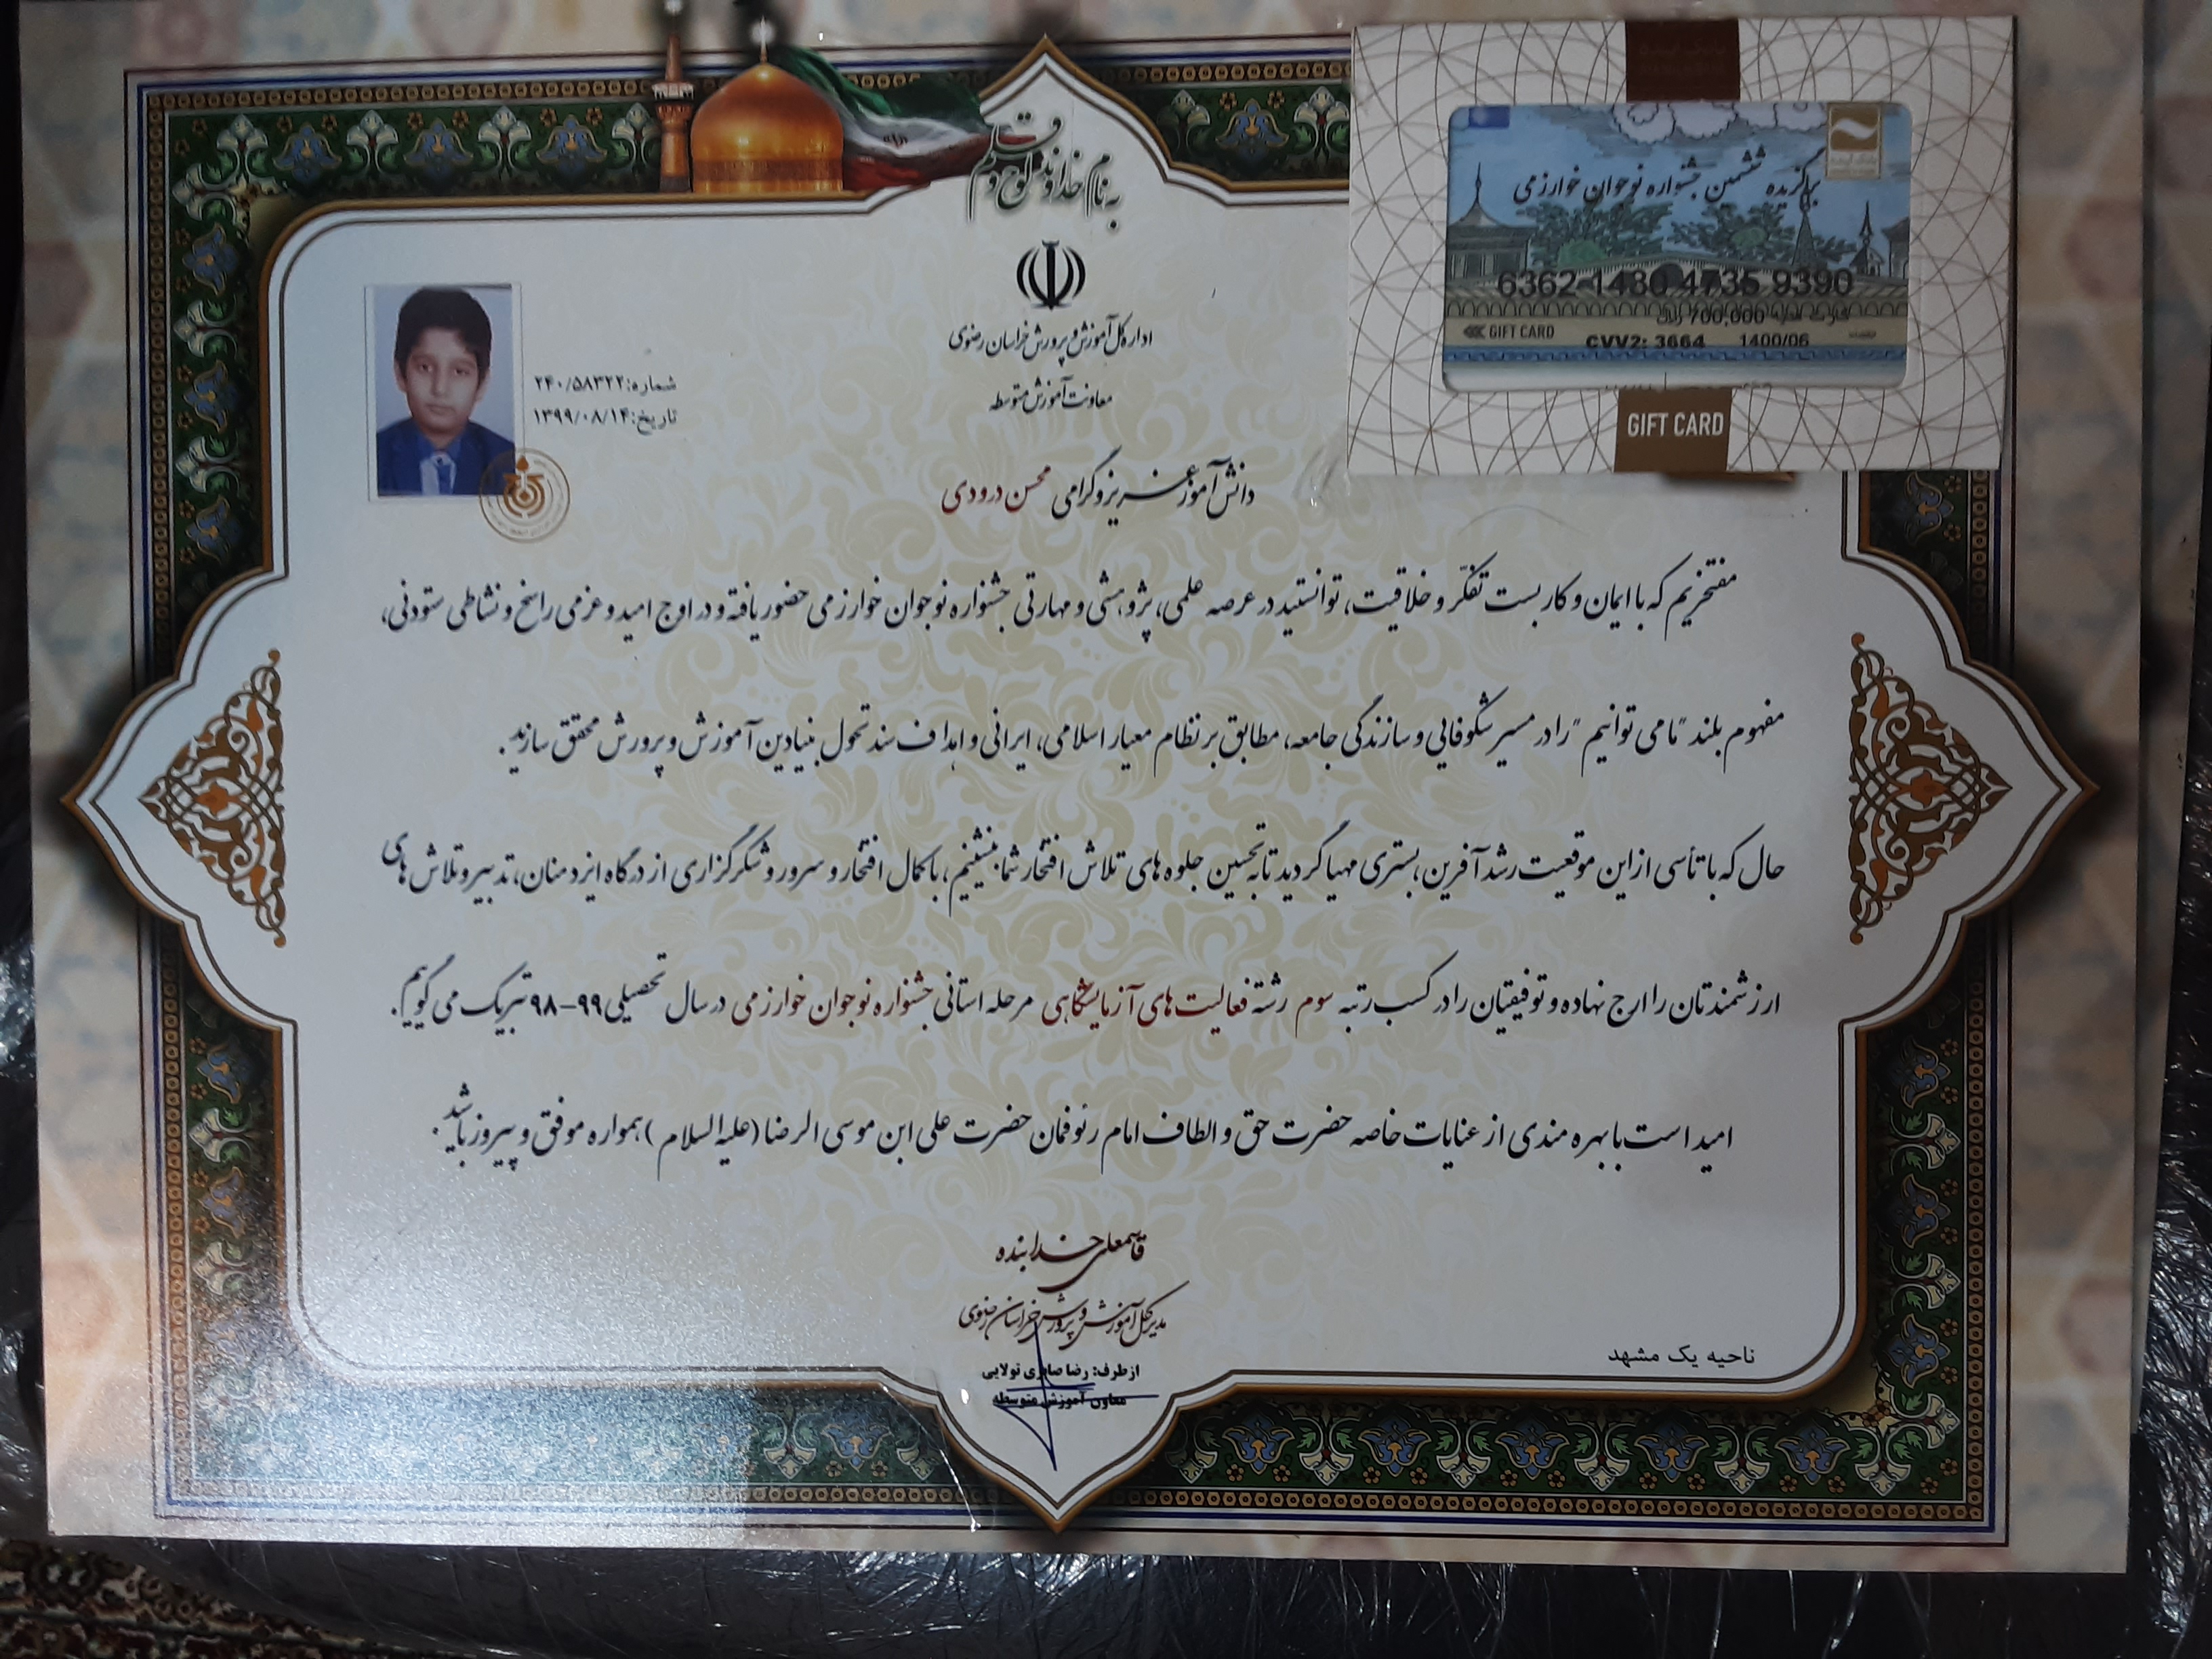 به نام خداوند لوح و قلم
اداره کل آموزش و پرورش خراسان رضوی
معاونت آموزش متوسطه
شماره: ۲۴۰/۵۸۳۲۲
تاریخ: ۱۳۹۹/۰۸/۱۴
برگزیده ششمین جشنواره نوجوان خوارزمی
6362 1480 4735 9390
700,000 ریال
GIFT CARD
CVV2: 3664 1400/06
GIFT CARD
دانش آموز عزیز و گرامی محسن درودی
مفتخریم که با ایمان و کاربست تفکّر و خلاقیت، توانستید در عرصه علمی، پژوهشی و مهارتی جشنواره نوجوان خوارزمی حضور یافته و در اوج امید و عزمی راسخ و نشاطی ستودنی،
مفهوم بلند "ما می توانیم" را در مسیر شکوفایی و سازندگی جامعه، مطابق بر نظام معیار اسلامی، ایرانی و اهداف سند تحول بنیادین آموزش و پرورش محقق سازید.
حال که با تأسی از این موقعیت رشد آفرین، بستری مهیا گردید تا به تحسین جلوه های تلاش افتخار شما بنشینیم، با کمال افتخار و سرور و شکرگزاری از درگاه ایزد منان، تدبیر و تلاش های
ارزشمندتان را ارج نهاده و توفیقتان را در کسب رتبه سوم رشته فعالیت های آزمایشگاهی مرحله استانی جشنواره نوجوان خوارزمی در سال تحصیلی ۹۹-۹۸ تبریک می گوییم.
امید است با بهره مندی از عنایات خاصه حضرت حق و الطاف امام رئوفمان حضرت علی ابن موسی الرضا (علیه السلام) همواره موفق و پیروز باشید.
قاسمعلی خدابنده
مدیرکل آموزش و پرورش خراسان رضوی
از طرف: رضا صابری تولایی
معاون آموزش متوسطه
ناحیه یک مشهد